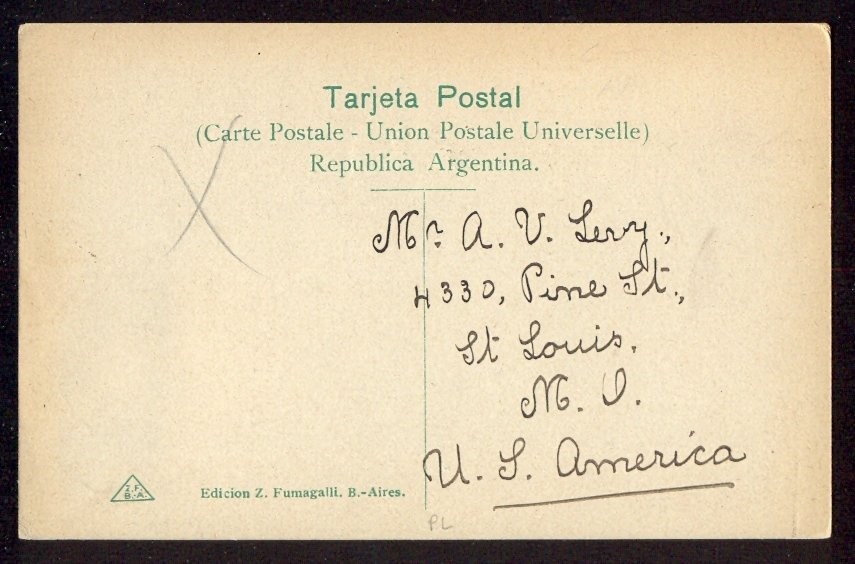 Tarjeta Postal
(Carte Postale - Union Postale Universelle)
Republica Argentina.
Mr. A. V. Levy.,
4330, Pine St.,
St Louis.
M. O.
U. S. America
Z.F.
B.-A.
Edicion Z. Fumagalli. B.-Aires.
PL